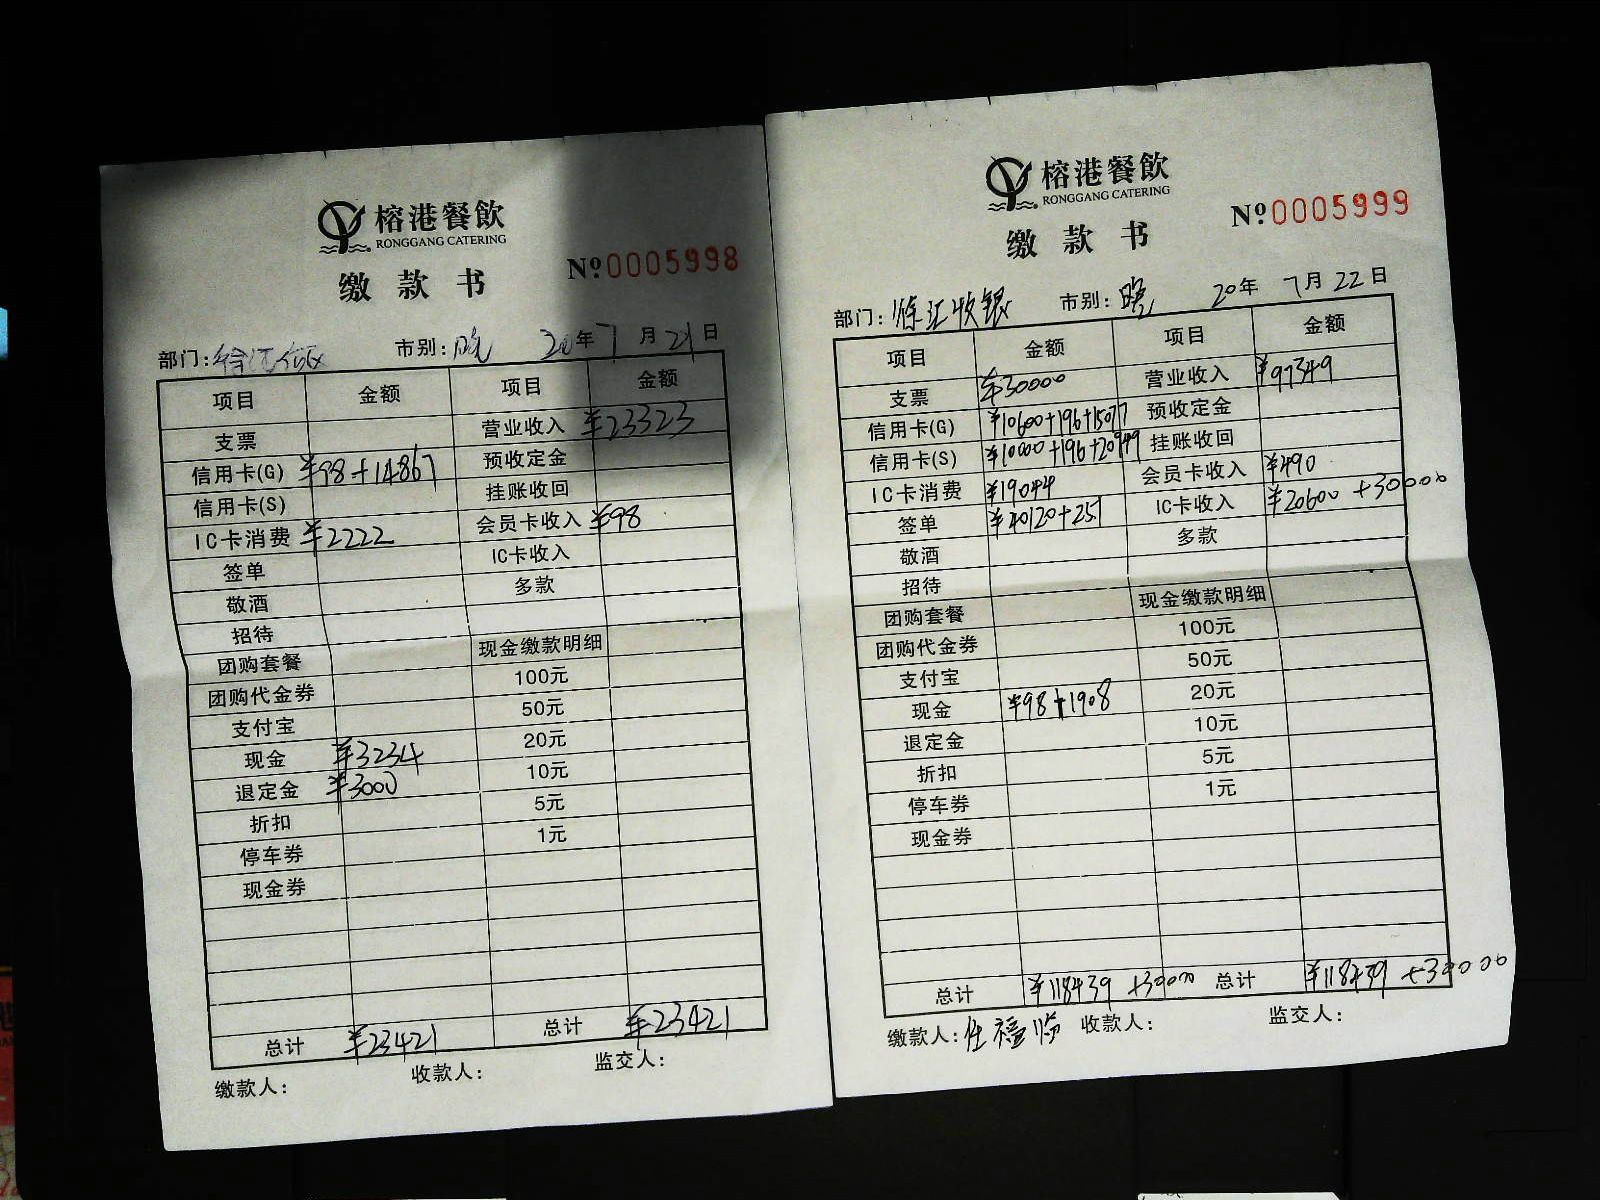 榕港餐飲
RONGGANG CATERING
缴款书
№0005998
部门: 市别:晚 20年7月21日
项目 金额 项目 金额
支票 营业收入 ¥23323
信用卡(G) ¥98+14867 预收定金
信用卡(S) 挂账收回
IC卡消费 ¥2222 会员卡收入 ¥98
签单 IC卡收入
敬酒 多款
招待
团购套餐 现金缴款明细
团购代金券 100元
支付宝 50元
现金 ¥3234 20元
退定金 ¥3000 10元
折扣 5元
停车券 1元
现金券
总计 ¥23421 总计 ¥23421
缴款人: 收款人: 监交人:
榕港餐飲
RONGGANG CATERING
缴款书
№0005999
部门:徐汇收银 市别:晚 20年7月22日
项目 金额 项目 金额
支票 ¥30000 营业收入 ¥97349
信用卡(G) ¥10600+196+15077 预收定金
信用卡(S) ¥10000+196+20949 挂账收回
IC卡消费 ¥19044 会员卡收入 ¥490
签单 ¥40120+251 IC卡收入 ¥20600+30000
敬酒 多款
招待
团购套餐 现金缴款明细
团购代金券 100元
支付宝 50元
现金 ¥98+1908 20元
退定金 10元
折扣 5元
停车券 1元
现金券
总计 ¥118439+30000 总计 ¥118439+30000
缴款人:任福临 收款人: 监交人: